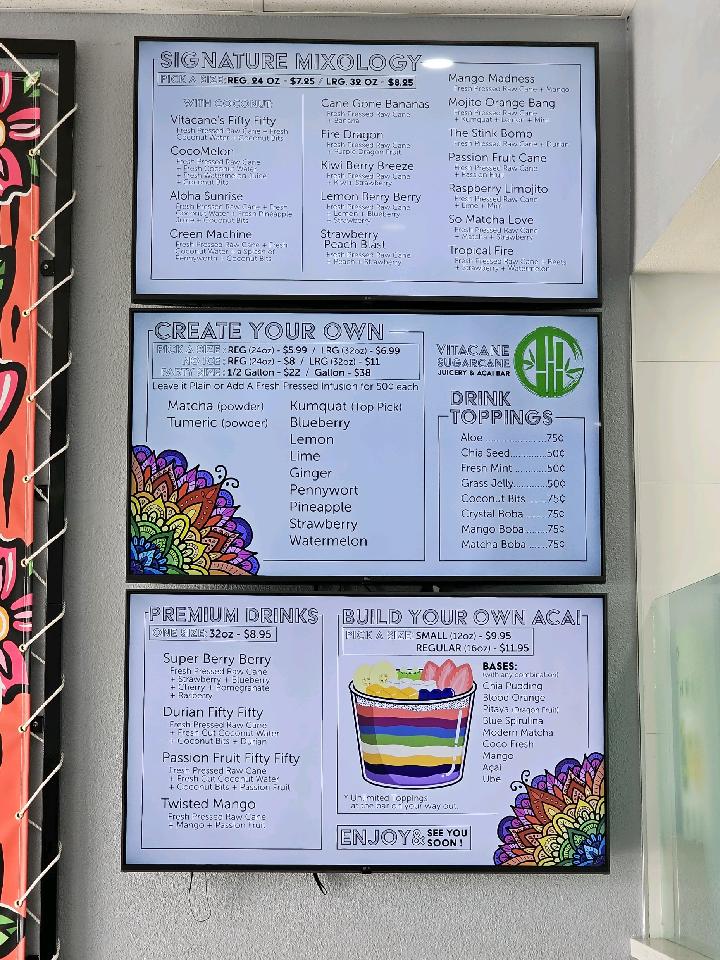 SIGNATURE MIXOLOGY
PICK A SIZE: REG. 24 OZ - $7.25 / LRG. 32 OZ - $8.25
WITH COCONUT
Vitacane's Fifty Fifty
Fresh Pressed Raw Cane + Fresh
Coconut Water + Coconut Bits
CocoMelon
Fresh Pressed Raw Cane
+ Fresh Coconut Water
+ Fresh Watermelon Juice
+ Coconut Bits
Aloha Sunrise
Fresh Pressed Raw Cane + Fresh
Coconut Water + Fresh Pineapple
Juice + Coconut Bits
Green Machine
Fresh Pressed Raw Cane + Fresh
Coconut Water + a Splash of
Pennywort + Coconut Bits
Cane Gone Bananas
Fresh Pressed Raw Cane
+ Banana
Fire Dragon
Fresh Pressed Raw Cane
+ Purple Dragon Fruit
Kiwi Berry Breeze
Fresh Pressed Raw Cane
+ Kiwi + Strawberry
Lemon Berry Berry
Fresh Pressed Raw Cane
+ Lemon + Blueberry
+ Strawberry
Strawberry
Peach Blast
Fresh Pressed Raw Cane
+ Peach + Strawberry
Mango Madness
Fresh Pressed Raw Cane + Mango
Mojito Orange Bang
Fresh Pressed Raw Cane
+ Kumquat + + Mint
The Stink Bomb
Fresh Pressed Raw Cane + Durian
Passion Fruit Cane
Fresh Pressed Raw Cane
+ Passion Fruit
Raspberry Limojito
Fresh Pressed Raw Cane
+ Lime + Mint
So Matcha Love
Fresh Pressed Raw Cane
+ Matcha + Strawberry
Tropical Fire
Fresh Pressed Raw Cane + Beets
+ Strawberry + Watermelon
CREATE YOUR OWN
PICK A SIZE: REG (24oz) - $5.99 / LRG (32oz) - $6.99
NO ICE: REG (24oz) - $8 / LRG (32oz) - $11
PARTY SIZE: 1/2 Gallon - $22 / Gallon - $38
Leave it Plain or Add A Fresh Pressed Infusion for 50¢ each
Matcha (powder)
Tumeric (powder)
Kumquat (Top Pick)
Blueberry
Lemon
Lime
Ginger
Pennywort
Pineapple
Strawberry
Watermelon
VITACANE
SUGARCANE
JUICERY & AÇAI BAR
DRINK
TOPPINGS
Aloe..................75¢
Chia Seed..........50¢
Fresh Mint.........50¢
Grass Jelly.........50¢
Coconut Bits.....75¢
Crystal Boba.....75¢
Mango Boba.....75¢
Matcha Boba.....75¢
PREMIUM DRINKS
ONE SIZE: 32oz - $8.95
Super Berry Berry
Fresh Pressed Raw Cane
+ Strawberry + Blueberry
+ Cherry + Pomegranate
+ Rasberry
Durian Fifty Fifty
Fresh Pressed Raw Cane
+ Fresh Cut Coconut Water
+ Coconut Bits + Durian
Passion Fruit Fifty Fifty
Fresh Pressed Raw Cane
+ Fresh Cut Coconut Water
+ Coconut Bits + Passion Fruit
Twisted Mango
Fresh Pressed Raw Cane
+ Mango + Passion Fruit
BUILD YOUR OWN ACAI
PICK A SIZE: SMALL (12oz) - $9.95
REGULAR (16oz) - $11.95
BASES:
(with any combination)
Chia Pudding
Blood Orange
Pitaya (Dragon Fruit)
Blue Spirulina
Modern Matcha
Coco Fresh
Mango
Açai
Ube
* Unlimited Toppings
at the bar on your way out.
ENJOY & SEE YOU
SOON!